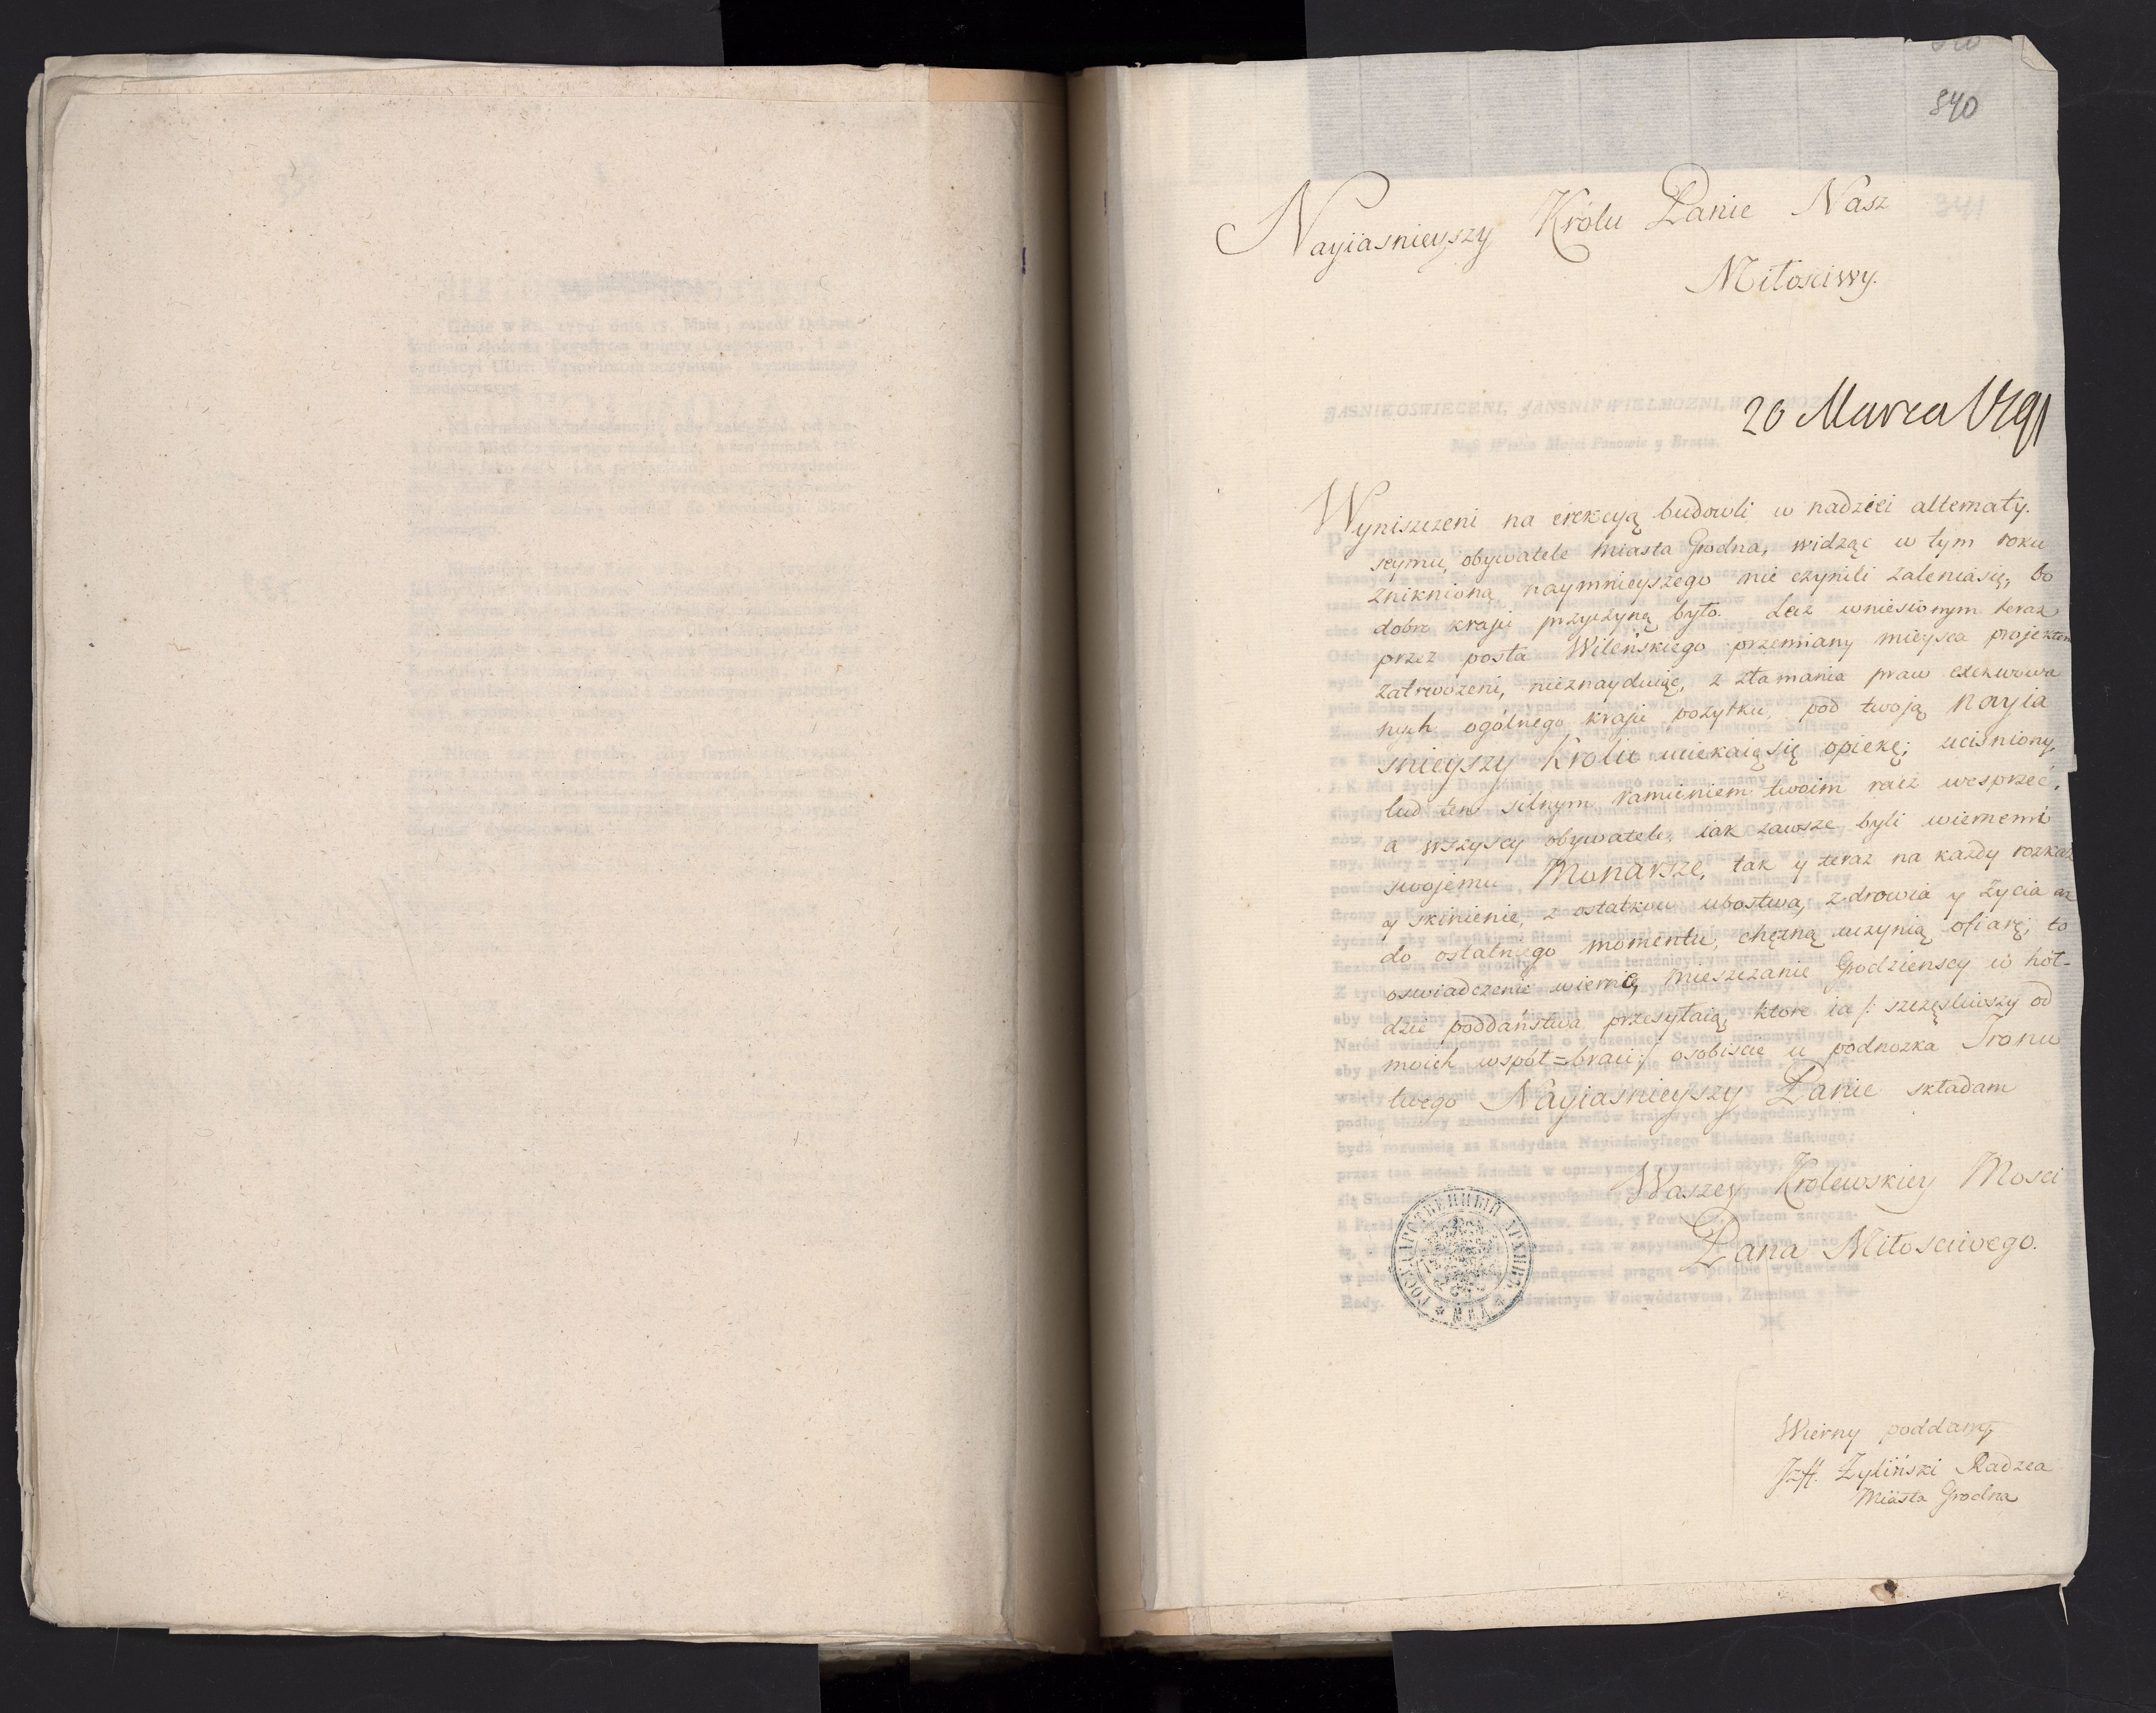 840
341
Nayiasnieyszy Królu Panie Nasz
Miłosciwy.
20 Marca 1791
Wyniszczeni na erekcyą budowli w nadziei alternaty.
seymu, obywatele Miasta Grodna, widząc w tym roku
zniknioną naymnieyszego nie czynili żaleniasię, bo
dobro kraju przyczyną było. Lecz wniesionym teraz
przez posła Wileńskiego przemiany mieysca projektem
zatrwożeni, nieznayduiąc, z złamania praw exekwowa
nych ogólnego kraju pożytku, pod twoją Nayia
snieyszy Królu uciekaią się opiekę; uciśniony,
lud ten silnym ramieniem twoim racz wesprzeć,
a wszyscy obywatele, iak zawsze byli wiernemi
swojemu Monarsze, tak y teraz na każdy rozkaz
y skinienie, z ostatkow ubostwa, zdrowia y życia aż
do ostatniego momentu, chętną uczynią ofiarę; to
oswiadczenie wierne, Mieszczanie Grodzienscy w hoł-
dzie poddaństwa przesyłaią, ktore ia /: szczęsliwszy od
moich wspoł=braci :/ osobiscie u podnożka Tronu
twego Nayiasnieyszy Panie składam
Waszey Krolewskiey Mosci
Pana Miłosciwego.
Wierny poddany
Jzff. Żyliński Radzca
Miasta Grodna